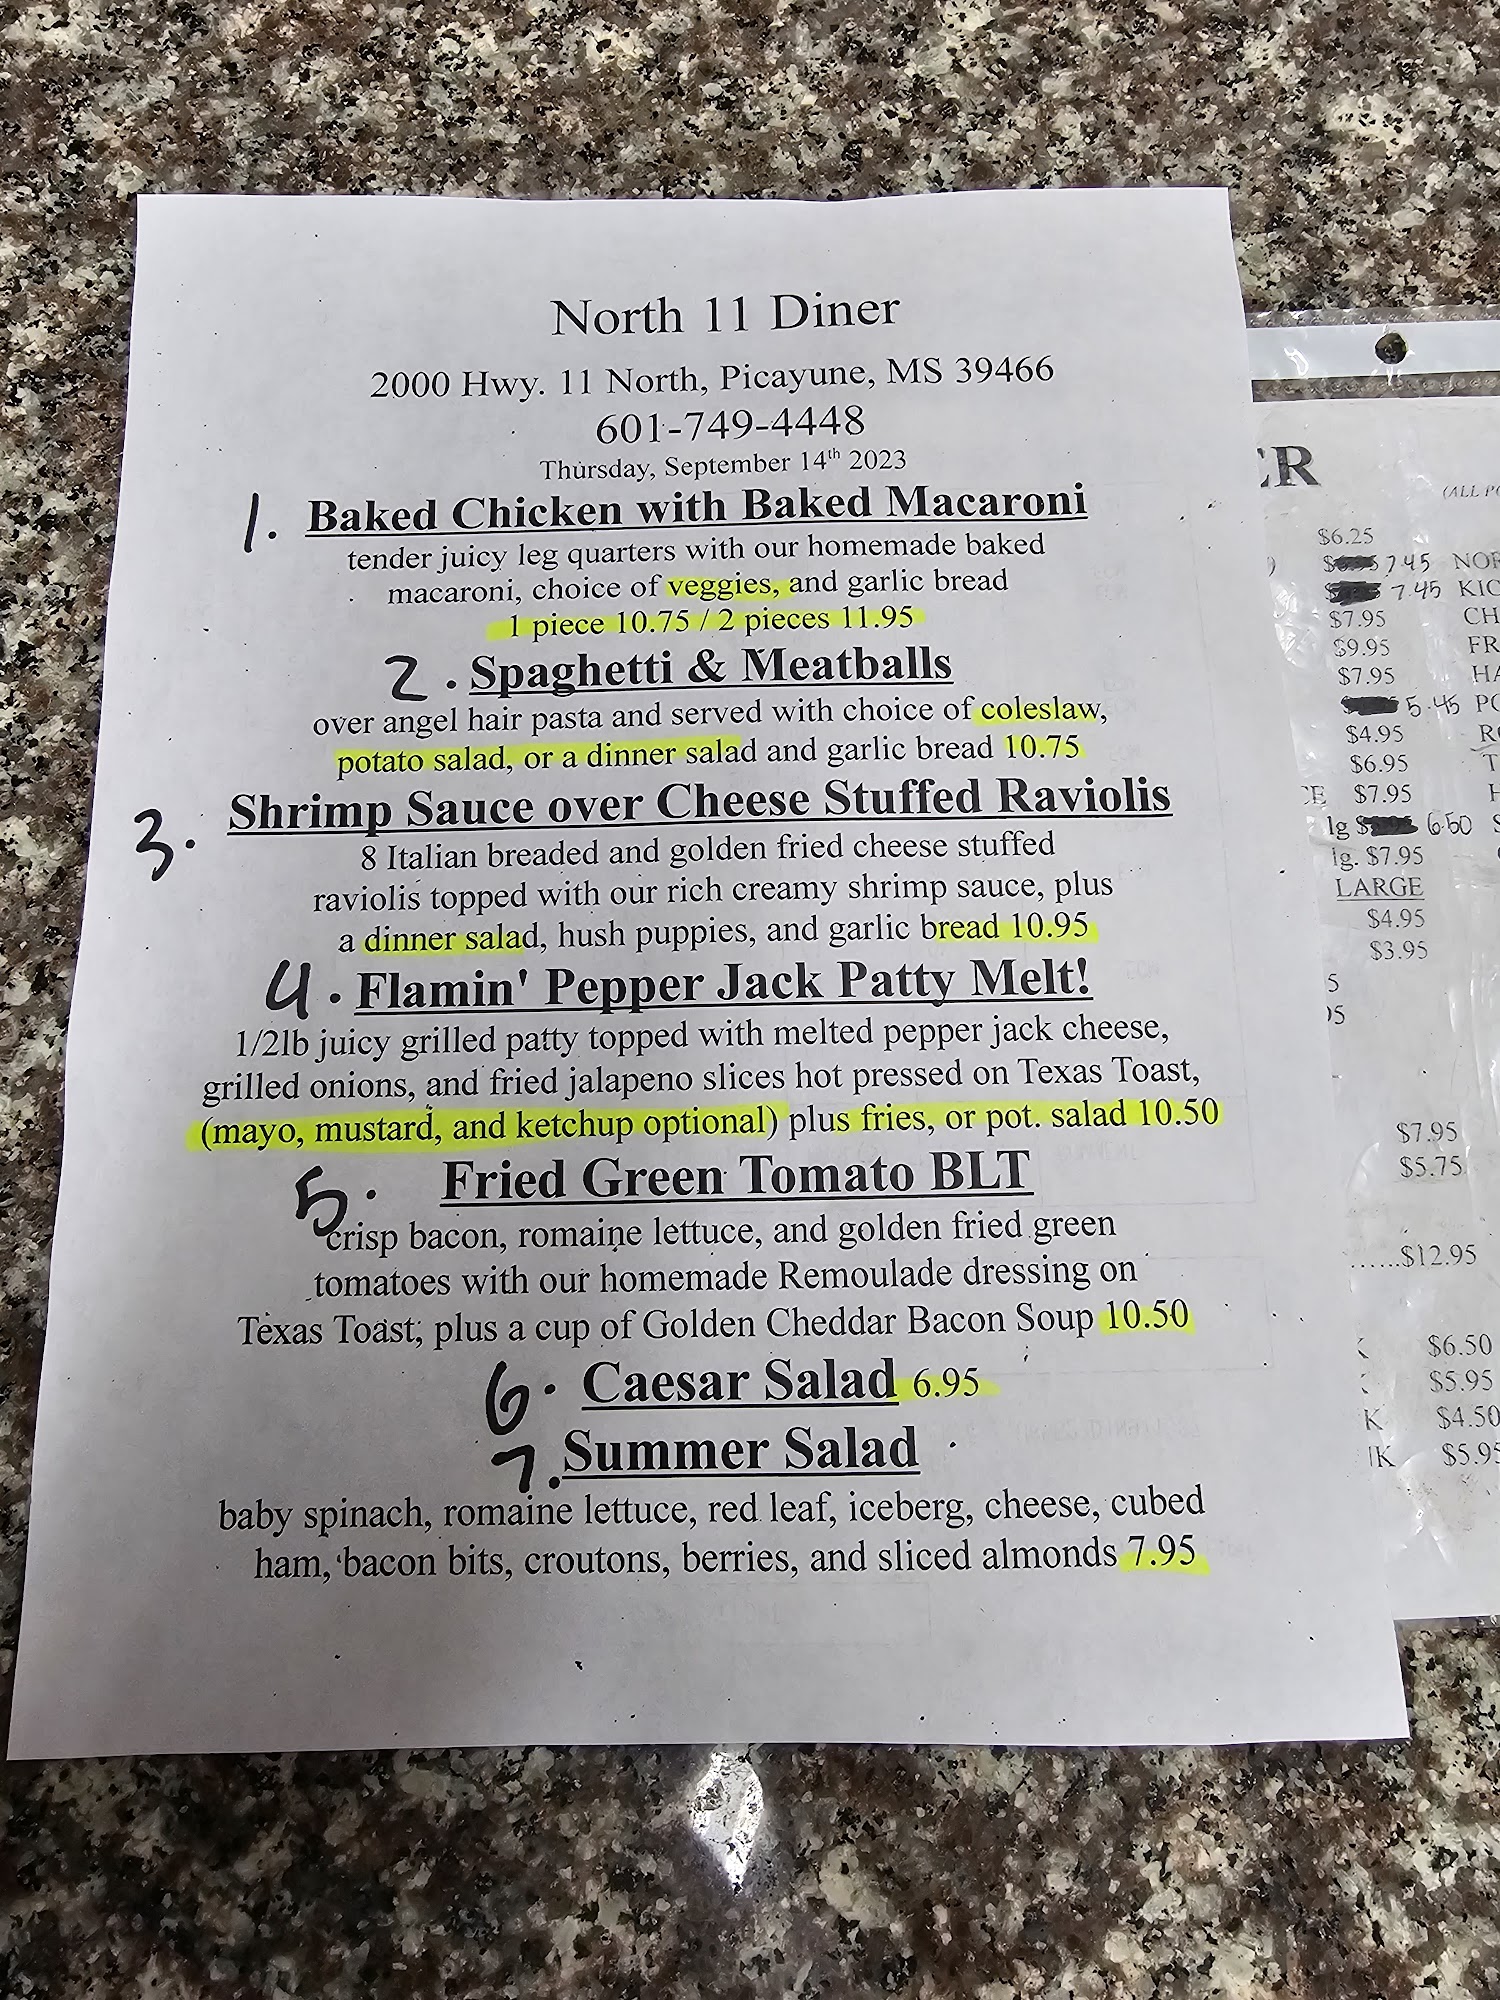 North 11 Diner
2000 Hwy. 11 North, Picayune, MS 39466
601-749-4448
Thursday, September 14th 2023
1. Baked Chicken with Baked Macaroni
tender juicy leg quarters with our homemade baked
macaroni, choice of veggies, and garlic bread
1 piece 10.75 / 2 pieces 11.95
2. Spaghetti & Meatballs
over angel hair pasta and served with choice of coleslaw,
potato salad, or a dinner salad and garlic bread 10.75
3. Shrimp Sauce over Cheese Stuffed Raviolis
8 Italian breaded and golden fried cheese stuffed
raviolis topped with our rich creamy shrimp sauce, plus
a dinner salad, hush puppies, and garlic bread 10.95
4. Flamin' Pepper Jack Patty Melt!
1/2lb juicy grilled patty topped with melted pepper jack cheese,
grilled onions, and fried jalapeno slices hot pressed on Texas Toast,
(mayo, mustard, and ketchup optional) plus fries, or pot. salad 10.50
5. Fried Green Tomato BLT
crisp bacon, romaine lettuce, and golden fried green
tomatoes with our homemade Remoulade dressing on
Texas Toast; plus a cup of Golden Cheddar Bacon Soup 10.50
6. Caesar Salad 6.95
7. Summer Salad
baby spinach, romaine lettuce, red leaf, iceberg, cheese, cubed
ham, bacon bits, croutons, berries, and sliced almonds 7.95
ER
(ALL PO
$6.25
7.45 NOR
7.45 KIC
$7.95 CH
$9.95 FR
$7.95 HA
5.45 PO
$4.95
$6.95 T
CE $7.95 H
lg 6.50 S
lg. $7.95
LARGE
$4.95
$3.95
5
95
$7.95
$5.75
......$12.95
$6.50
$5.95
K $4.50
K $5.95